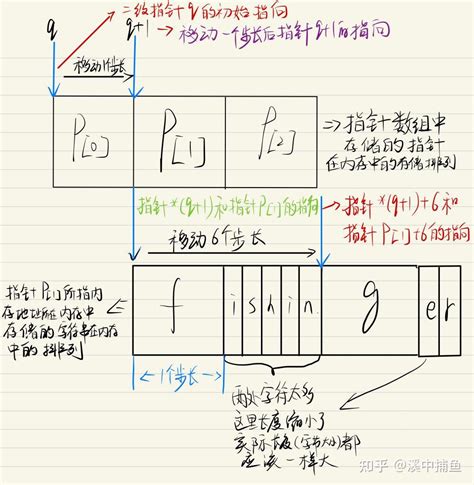 二级指针q的初始指向
q q+1 → 移动一个步长后指针q+1的指向
移动1个步长
P[0] P[1] P[2]
⇒ 指针数组中
存储的指针
在内存中的存储排列
指针*(q+1)和指针P[1]的指向
指针*(q+1)+6和
指针P[1]+6的指向
移动6个步长
指针P[1]所指内
存地址在内存中
存储的字符串在内存
中的排列
f i s h i n g er
1个步长
两处字符太多
这里长度缩小了
实际长度(字节大小)都
应该一样大
知乎 @溪中捕鱼